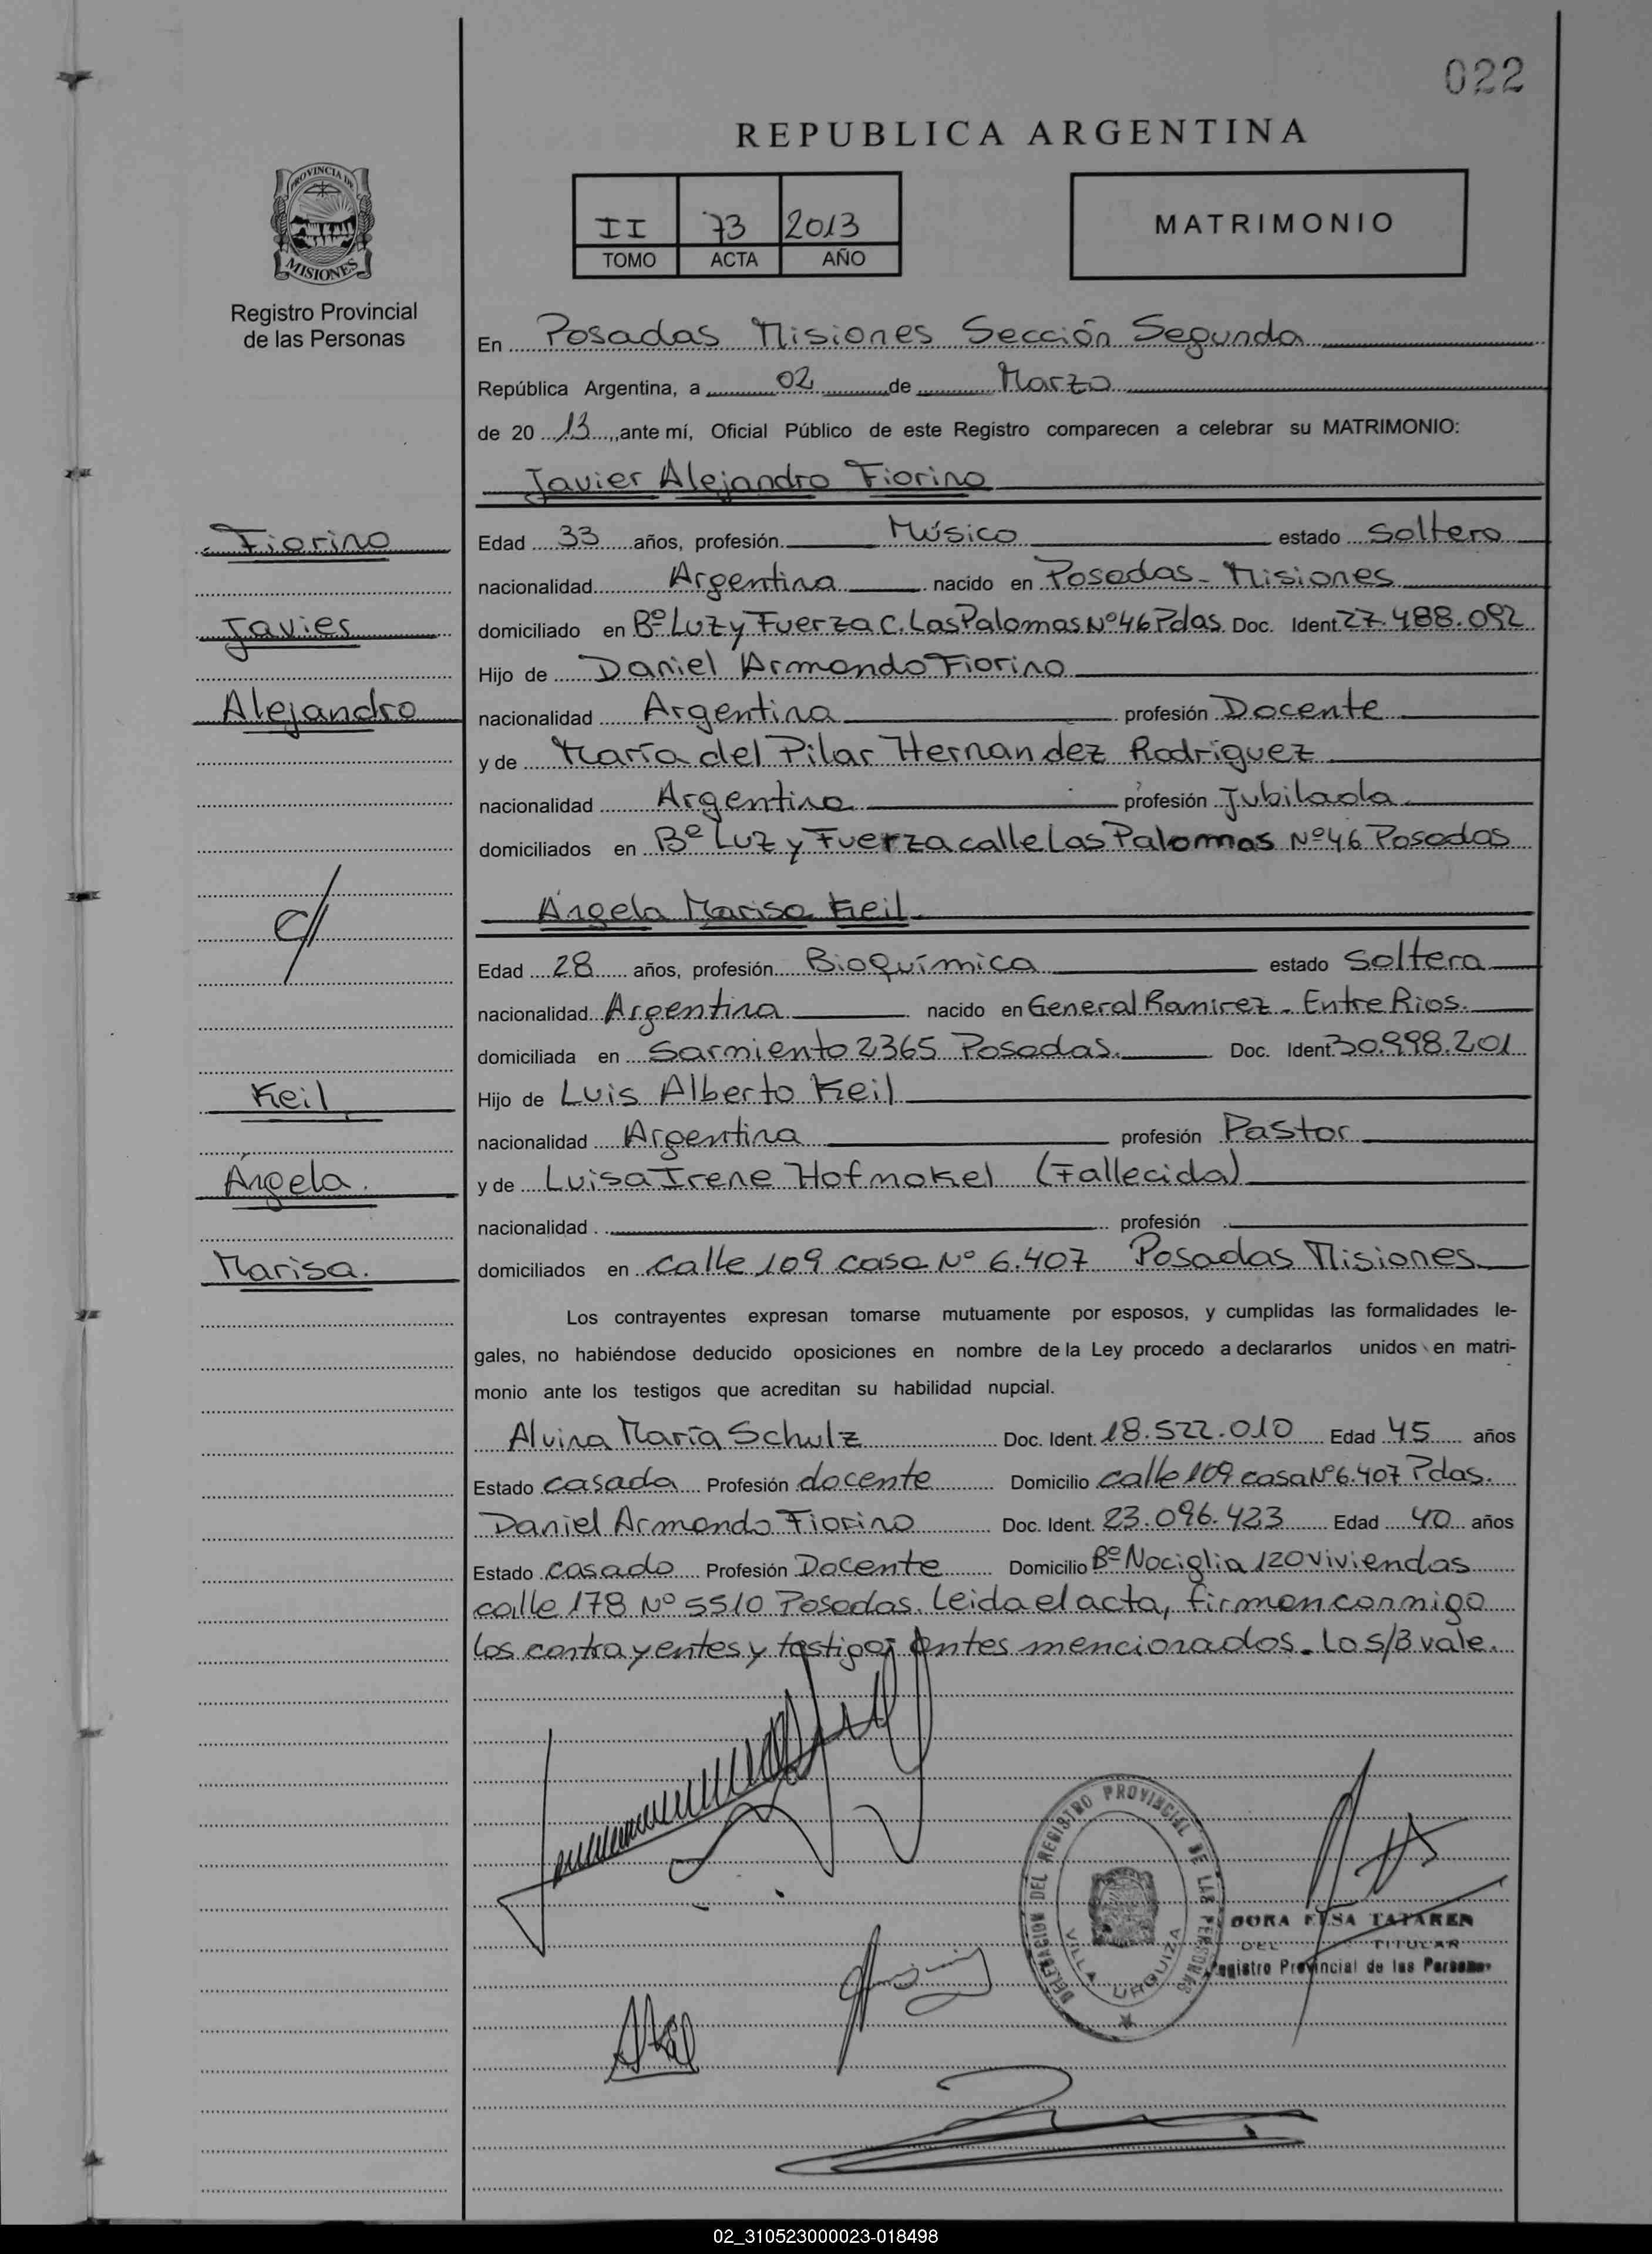 022
REPUBLICA ARGENTINA
II 73 2013
TOMO ACTA AÑO
MATRIMONIO
PROVINCIA DE
MISIONES
Registro Provincial
de las Personas
En Posadas Misiones Sección Segunda
República Argentina, a 02 de Marzo
de 20 13, ante mí, Oficial Público de este Registro comparecen a celebrar su MATRIMONIO:
Javier Alejandro Fiorino
Fiorino
Edad 33 años, profesión Músico estado Soltero
nacionalidad Argentina nacido en Posadas - Misiones
Javier
domiciliado en Bº Luz y Fuerza C. Las Palomas Nº 46 Pdas. Doc. Ident. 27.488.092
Hijo de Daniel Armando Fiorino
Alejandro
nacionalidad Argentina profesión Docente
y de María del Pilar Hernandez Rodriguez
nacionalidad Argentina profesión Jubilada
domiciliados en Bº Luz y Fuerza calle Las Palomas Nº 46 Posadas
C//
Ángela Marisa Keil
Edad 28 años, profesión Bioquímica estado Soltera
nacionalidad Argentina nacido en General Ramirez - Entre Rios.
domiciliada en Sarmiento 2365 Posadas. Doc. Ident. 30.998.201
Keil
Hijo de Luis Alberto Keil
nacionalidad Argentina profesión Pastor
Ángela.
y de Luisa Irene Hofmokel (Fallecida)
nacionalidad profesión
Marisa.
domiciliados en calle 109 casa Nº 6.407 Posadas Misiones
Los contrayentes expresan tomarse mutuamente por esposos, y cumplidas las formalidades le-
gales, no habiéndose deducido oposiciones en nombre de la Ley procedo a declararlos unidos en matri-
monio ante los testigos que acreditan su habilidad nupcial.
Alvina María Schulz Doc. Ident. 18.522.010 Edad 45 años
Estado casada Profesión docente Domicilio calle 109 casa Nº 6.407 Pdas.
Daniel Armando Fiorino Doc. Ident. 23.096.423 Edad 40 años
Estado casado Profesión Docente Domicilio Bº Nociglia 120 viviendas
calle 178 Nº 5510 Posadas. Leida el acta, firman conmigo
los contrayentes y testigos antes mencionados. Lo s/B vale.
DELEGACION DEL REGISTRO PROVINCIAL DE LAS PERSONAS
VILLA URQUIZA
DORA ELSA TATAREN
DEL TITULAR
Registro Provincial de las Personas
02_310523000023-018498